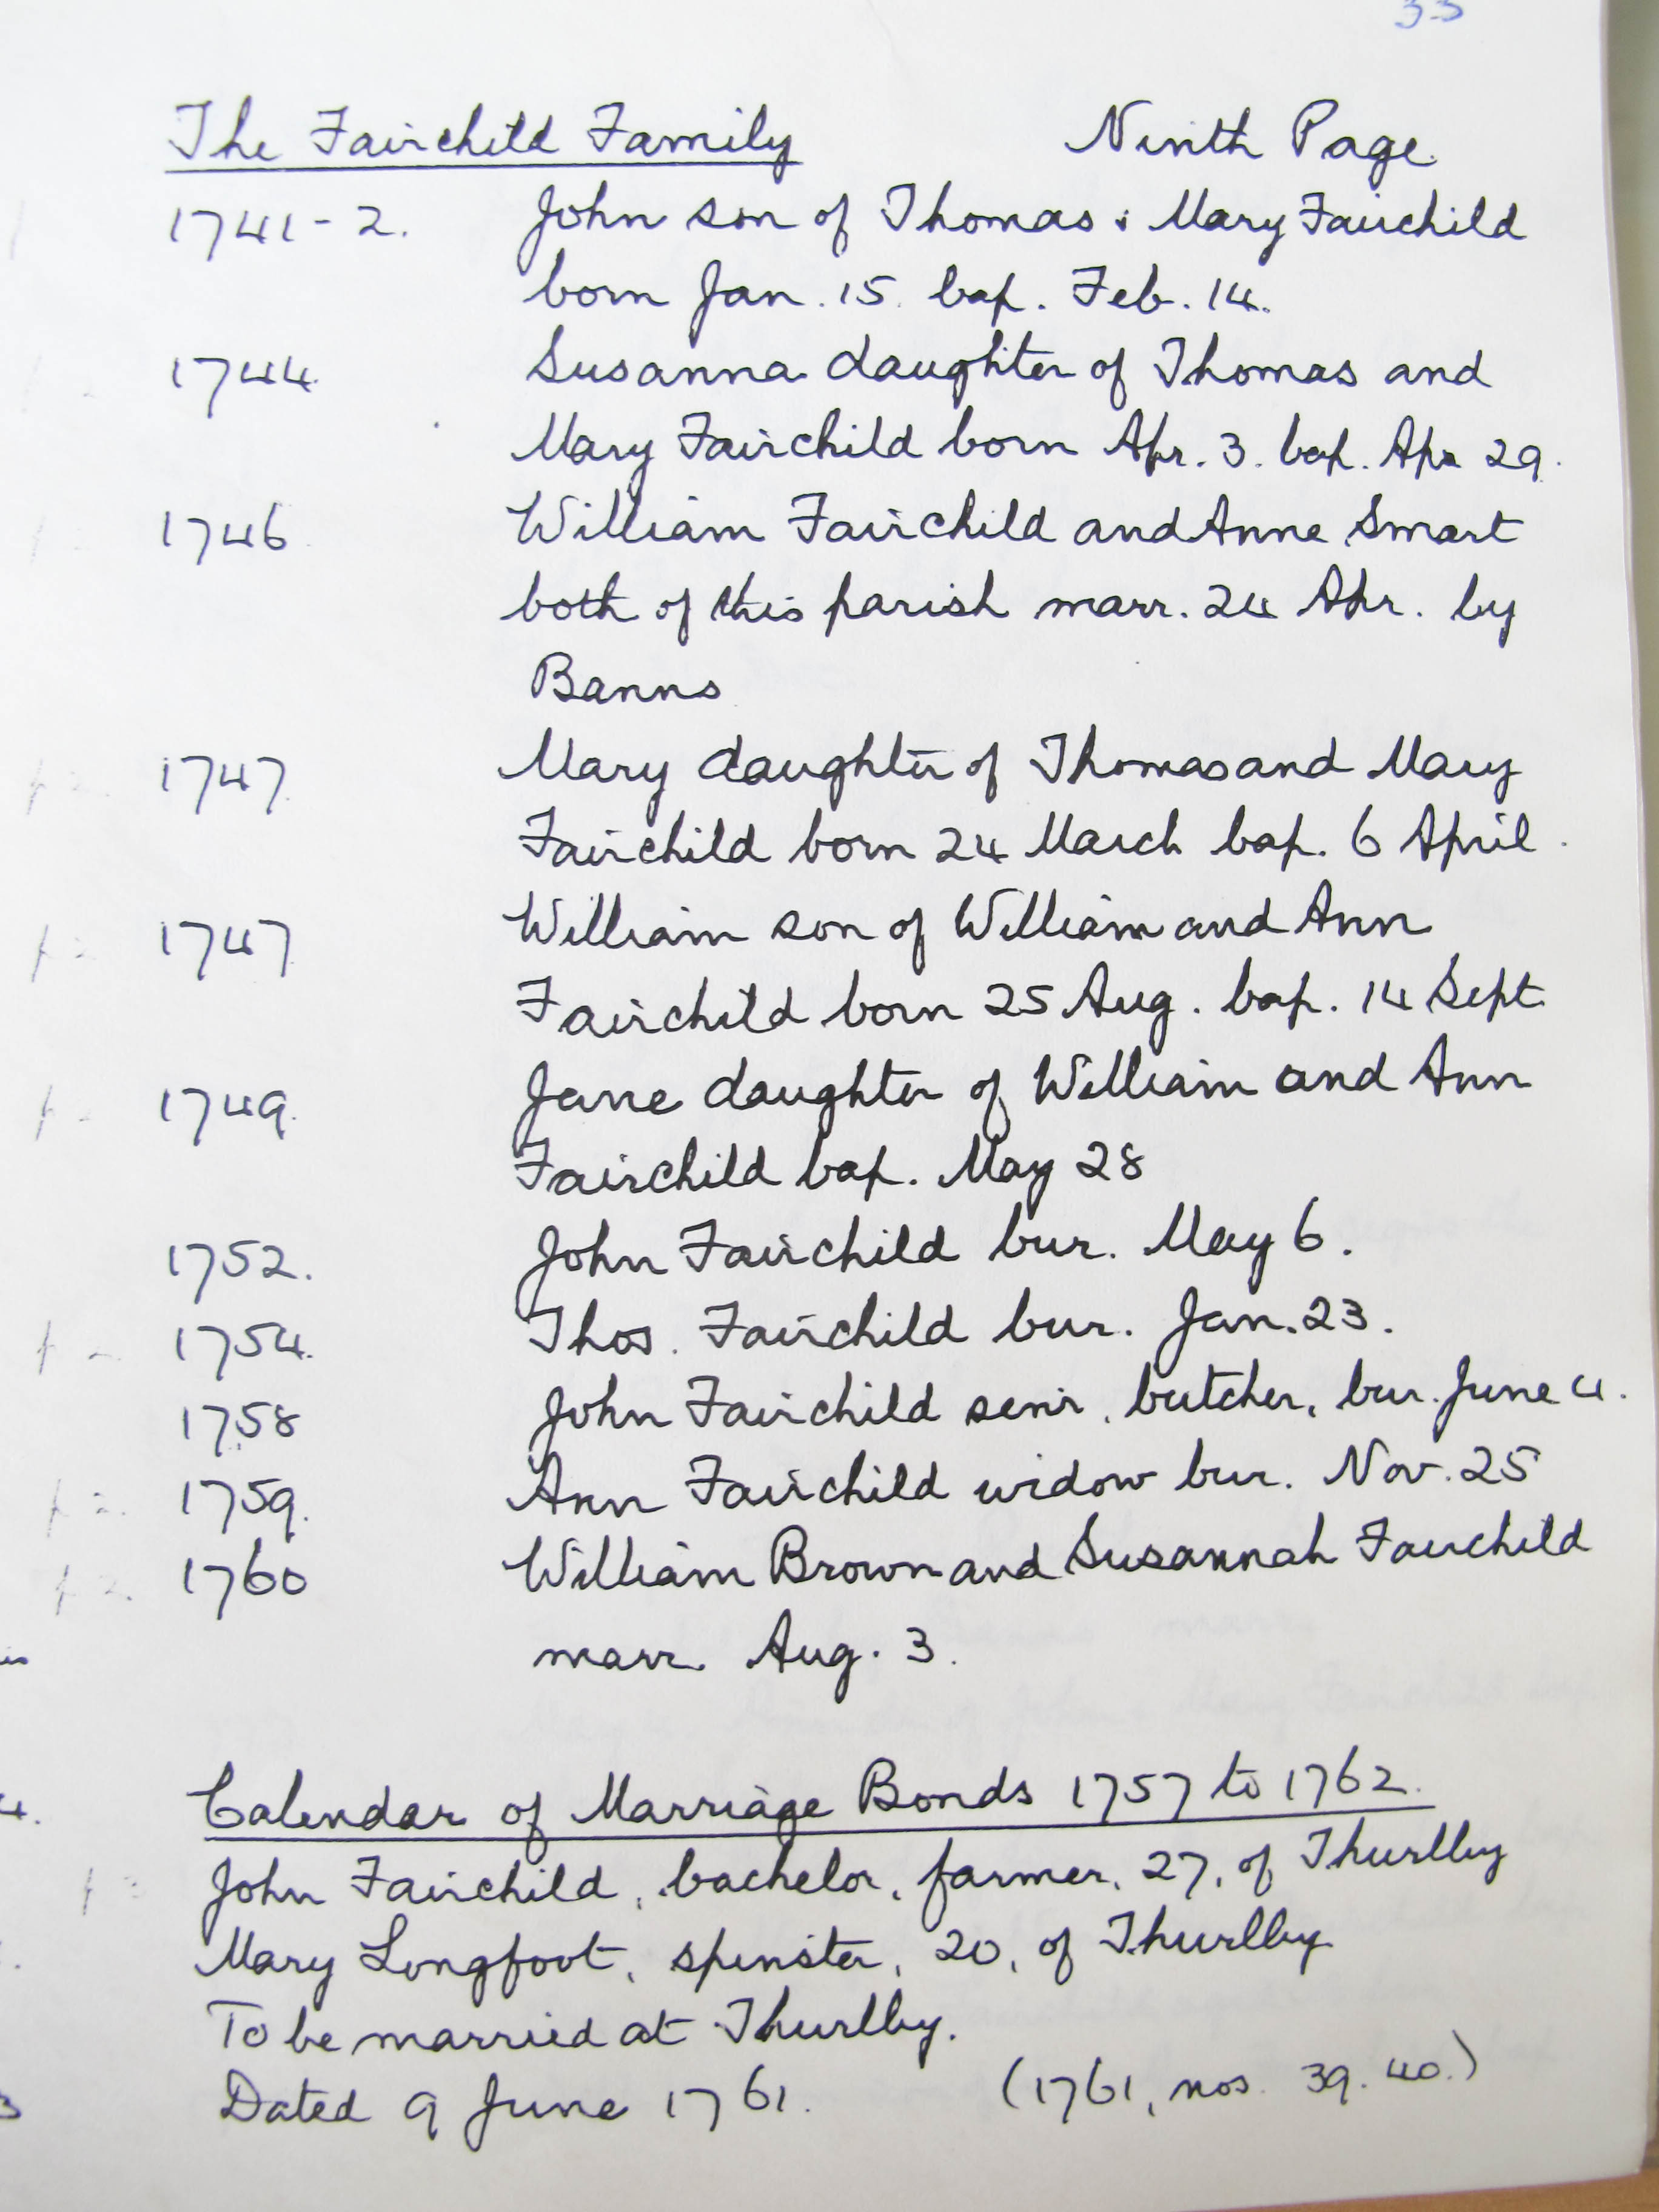 33
The Fairchild Family Ninth Page.
1741-2. John son of Thomas & Mary Fairchild
born Jan. 15. bap. Feb. 14.
1744. Susanna daughter of Thomas and
Mary Fairchild born Apr. 3. bap. Apr 29.
1746 William Fairchild and Anne Smart
both of this parish marr. 24 Apr. by
Banns
1747. Mary daughter of Thomas and Mary
Fairchild born 24 March bap. 6 April.
1747 William son of William and Ann
Fairchild born 25 Aug. bap. 14 Sept
1749. Jane daughter of William and Ann
Fairchild bap. May 28
1752. John Fairchild bur. May 6.
1754. Thos. Fairchild bur. Jan. 23.
1758 John Fairchild senr, butcher, bur. June 4.
1759. Ann Fairchild widow bur. Nov. 25
1760 William Brown and Susannah Fairchild
marr. Aug. 3.
Calendar of Marriage Bonds 1757 to 1762.
John Fairchild, bachelor, farmer, 27, of Thurlby
Mary Longfoot, spinster, 20, of Thurlby.
To be married at Thurlby.
Dated 9 June 1761. (1761, nos. 39. 40.)